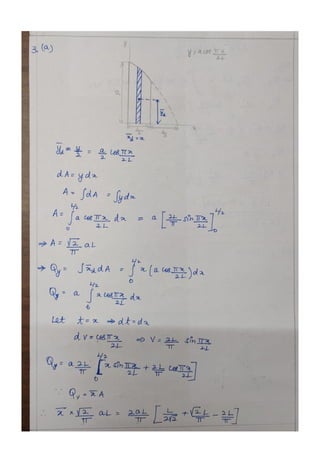 3. (a)
y = a cos πx/2L
y
a
L/2
L/2
x
x̄el = x
ȳel
ȳel = y/2 = a/2 cos πx/2L
dA = y dx
A = ∫dA = ∫y dx
A = ∫₀^{L/2} a cos πx/2L dx = a [2L/π sin πx/2L]₀^{L/2}
⇒ A = √2/π aL
⇒ Qy = ∫x̄el dA = ∫₀^{L/2} x (a cos πx/2L) dx
Qy = a ∫₀^{L/2} x cos πx/2L dx
Let t = x ⇒ dt = dx
dv = cos πx/2L ⇒ v = 2L/π sin πx/2L
Qy = a 2L/π [x sin πx/2L + 2L/π cos πx/2L]₀^{L/2}
∵ Qy = x̄ A
∴ x̄ × √2/π aL = 2aL/π [L/2√2 + √2L/π − 2L/π]